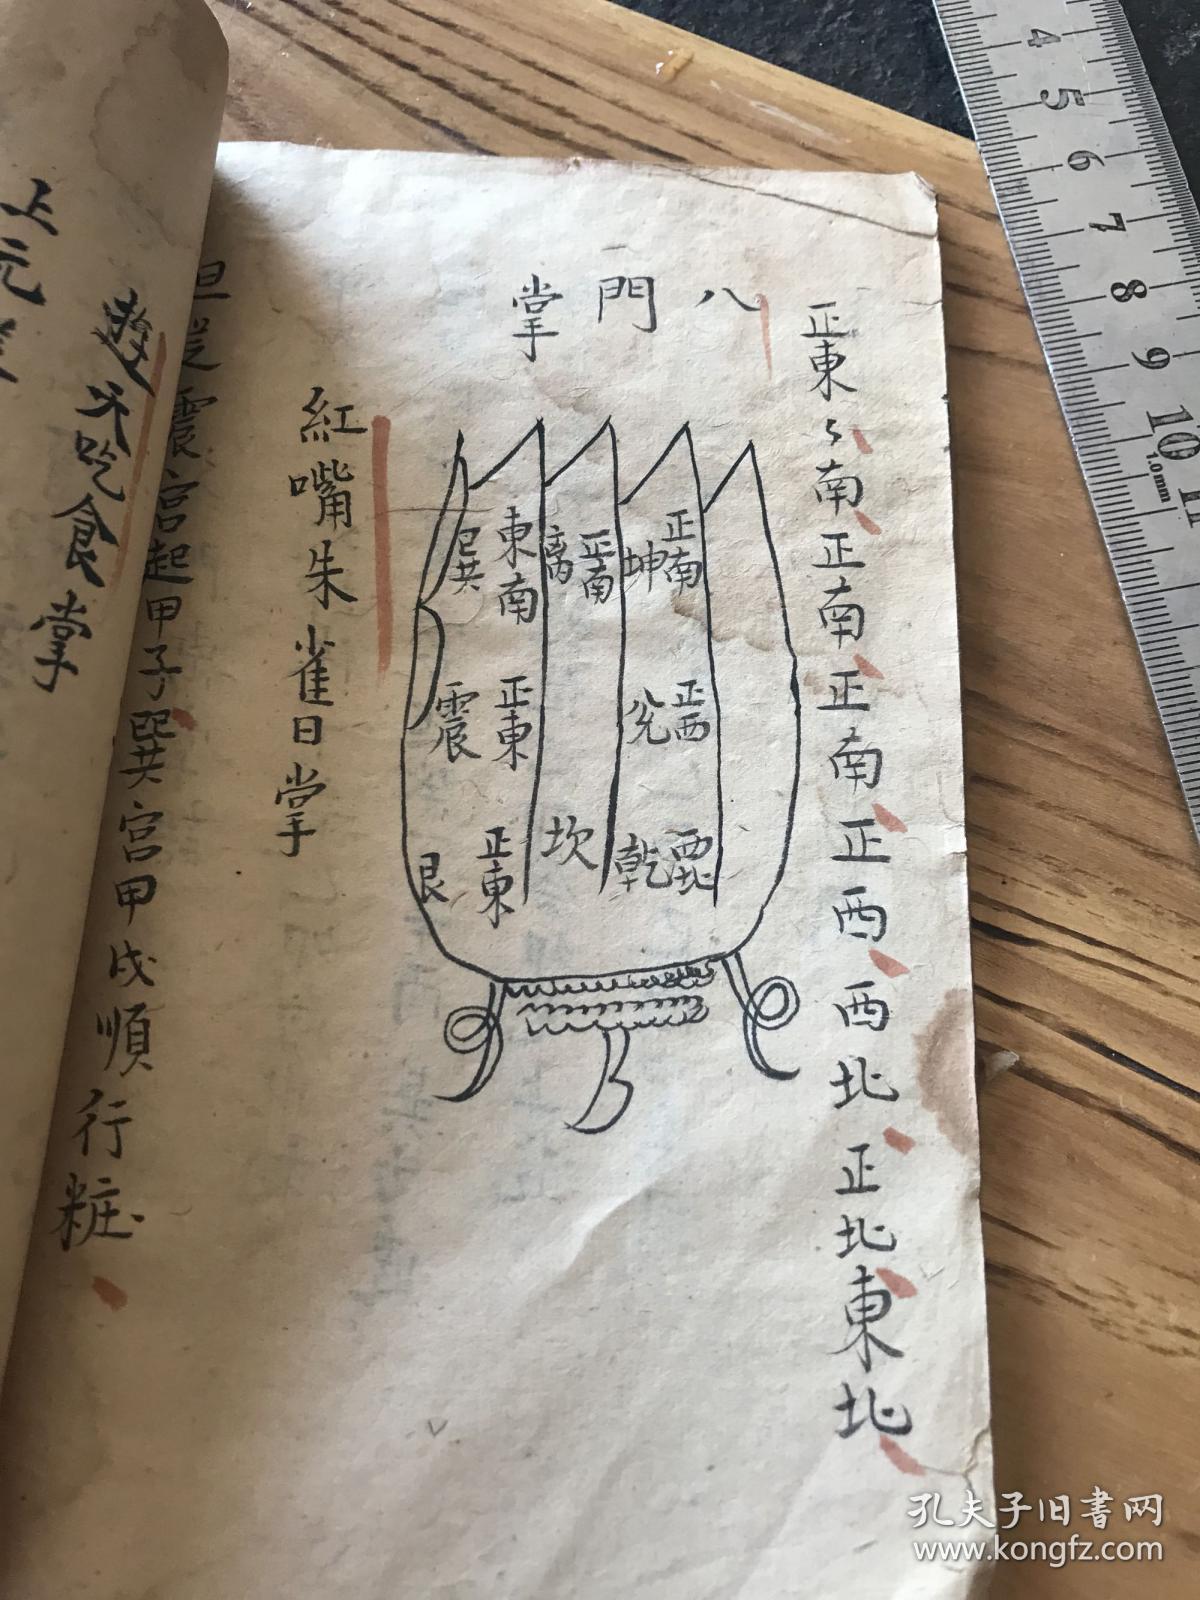 正東〻南正南正南正西西北正北東北
八門掌
正南
坤
正西
兌
西北
乾
正南
離
坎
東南
巽
正東
震
正東
艮
紅嘴朱雀日掌
但從震宮起甲子巽宮甲戌順行粧
天吃食掌
上元
4 5 6 7 8 9 10 11
1.0mm
孔夫子旧书网
www.kongfz.com